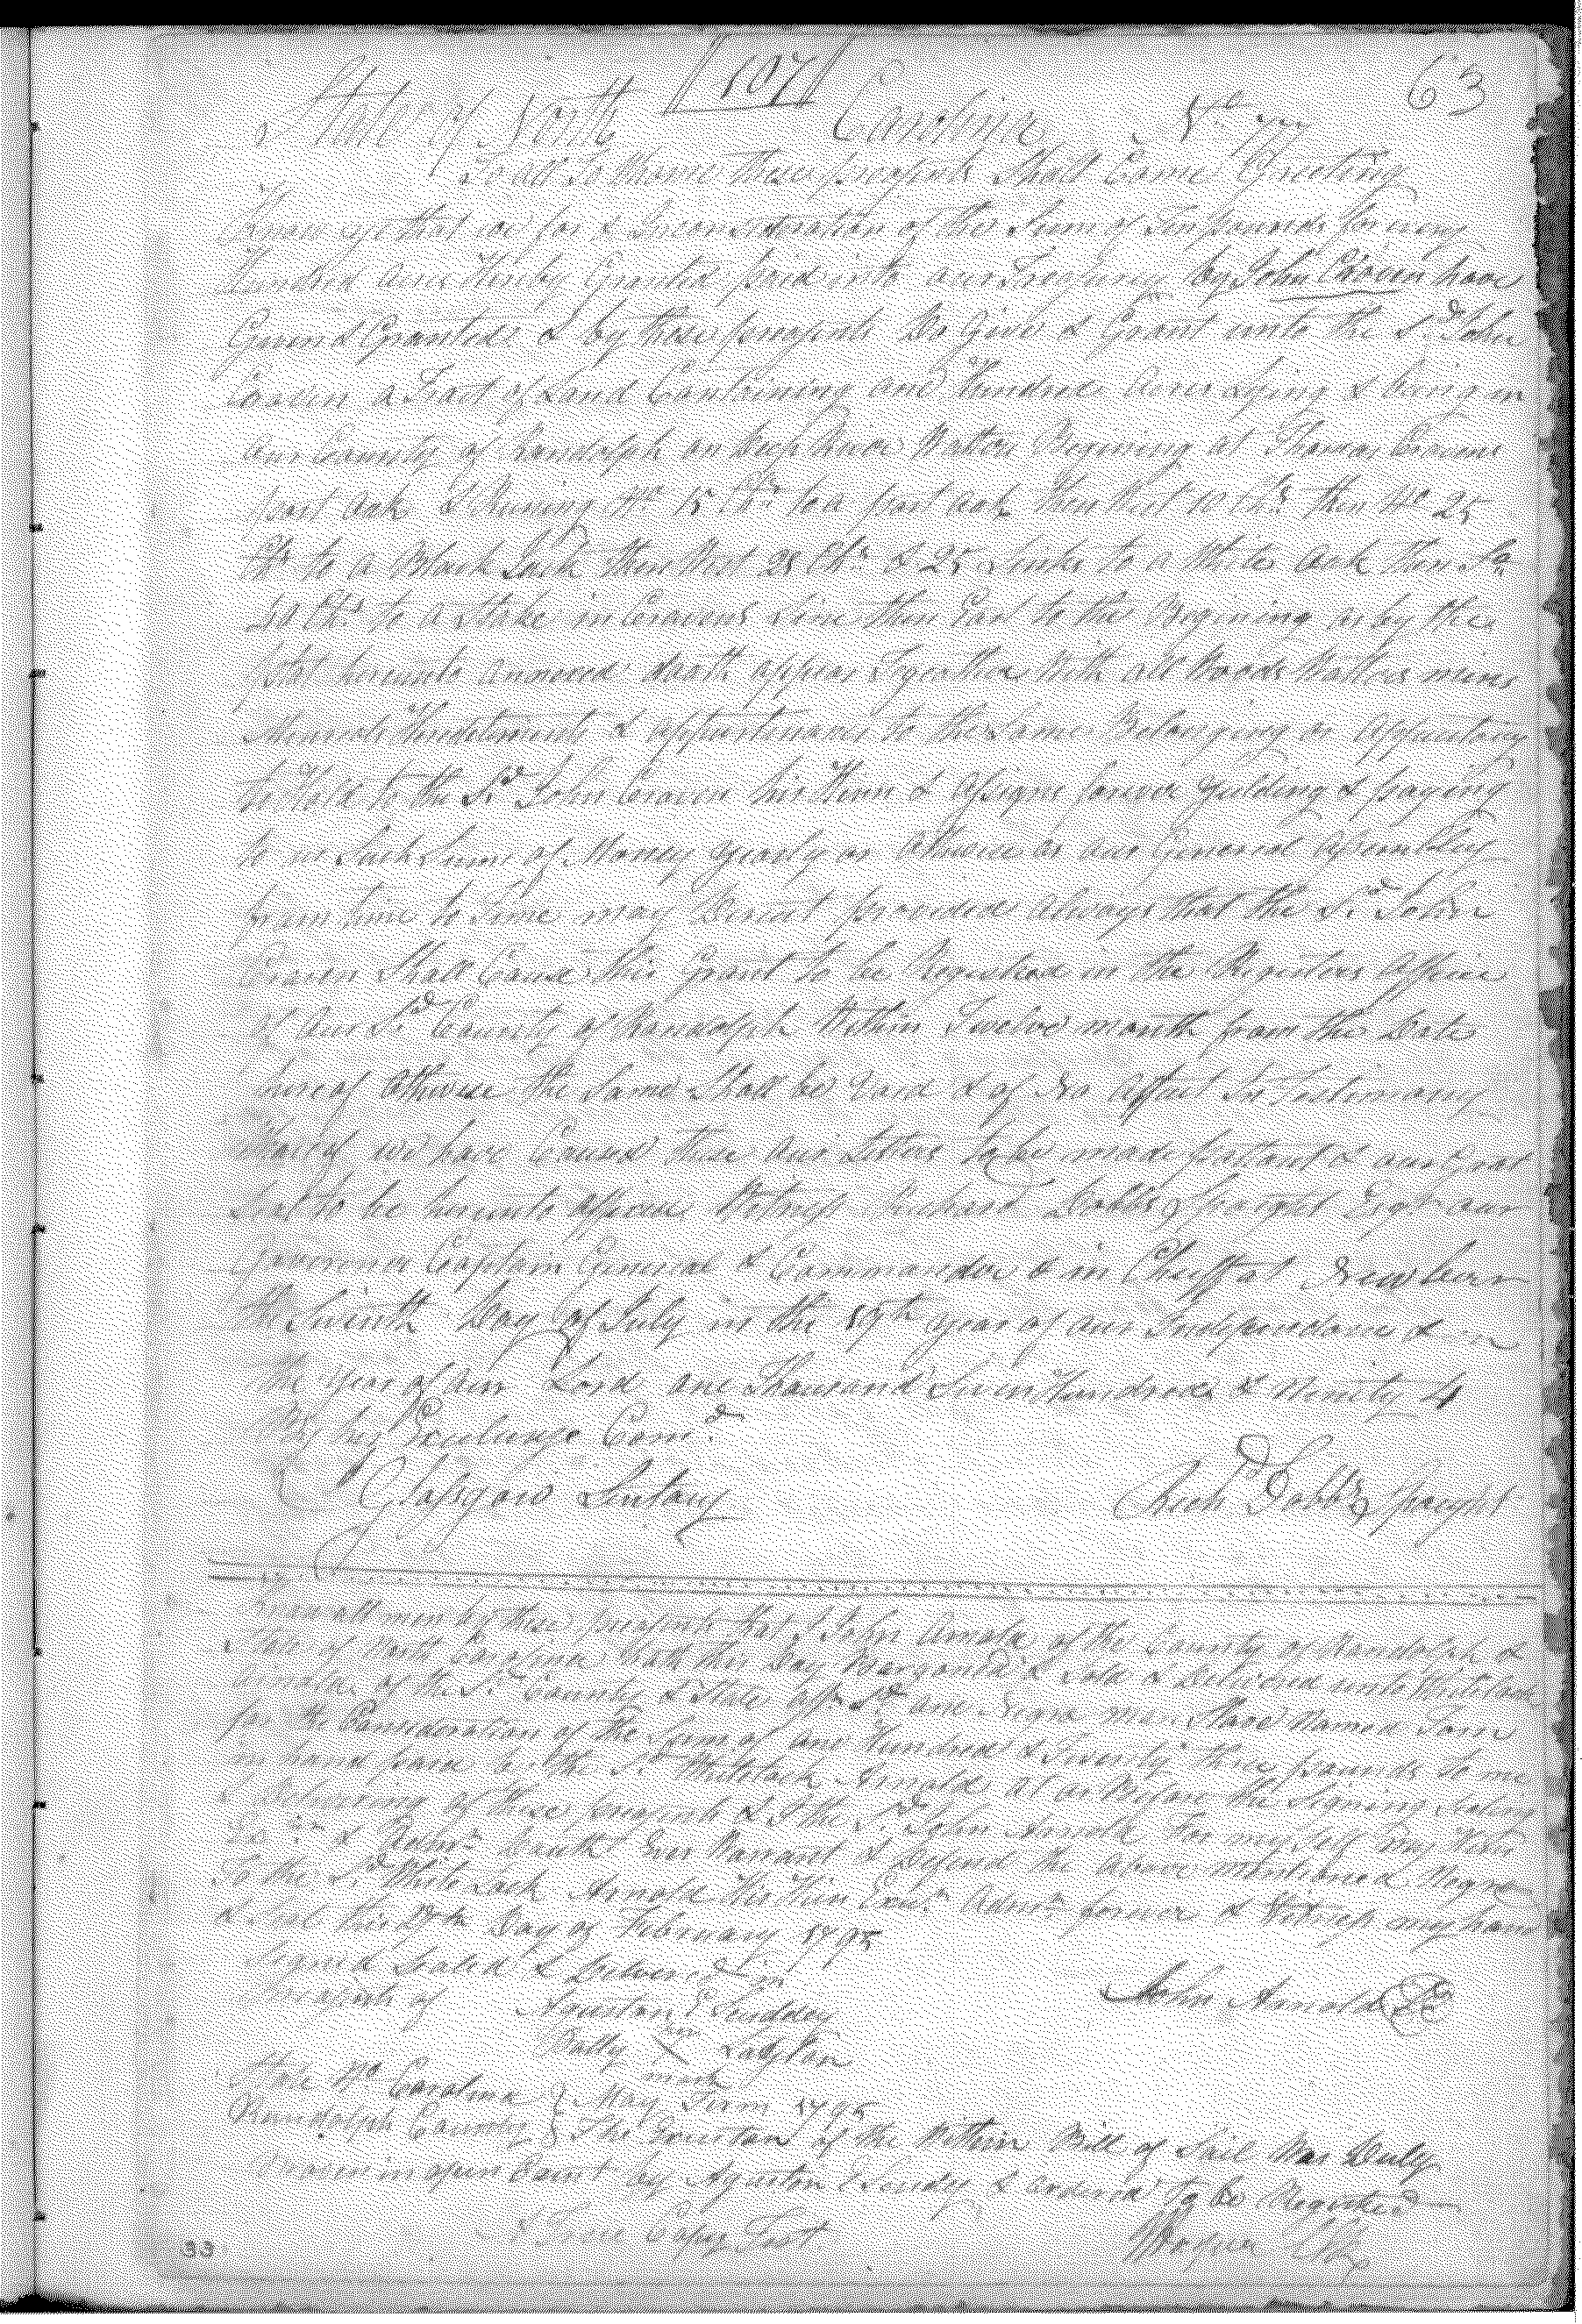 107
63
State of North Carolina No 77
To all To Whome these presents Shall Come Greeting
Know ye that we for & Inconsideration of the Sum of Ten pounds for every
Hundred acres Hereby Granted paid into our Treasury by John Craven have
Given & Granted & by these presents Do Give & Grant unto the Sd John
Craven a Tract of Land Containing one Hundred acres Lying & being in
our County of Randolph on Deep River Watters Begining at Thomas Cravens
post oak & Runing No 15 Chs to a post oak then West 10 Chs then No 25
Chs to a Black Jack then West 28 Chs & 25 Links to a White oak then So
Chs to a Stake in Cravens Line then East to the Begining as by the
plat hereunto annexed doath appear Together With all Woods Watters mines
minerals Hereditaments & appurtenances to the Same Belonging or appertaining
to Hold to the Sd John Craven his Heirs & assigns forever yielding & paying
to us Such Sums of Money yearly or otherwise as our General assembly
from time to Time may Direct provided always that the Sd John
Craven Shall Cause this Grant to be Registred in the Registers office
of our Sd County of Randolph Within Twelve month from the Date
hereof otherwise the Same Shall be Void & of No affect In Testimony
Whareof we have Caused these our Letters to be made pattant & our Great
Seal to be hereunto affixed Witness Richard Dobbs Spaight Esqr our
Governor Captain General & Commander in Cheiff at Newbern
the Day of July in the 19th year of our Independance & in
the year of our Lord one Thousand Seven Hundred & Ninety 4
By his Excelency Comd
J Glasgow Sectary Richd Dobbs Spaight
Know all men by these presents that I John Arnold of the County of Randolph &
State of North Carolina hath this Day Bargained & Sold & Delivered unto Whitelock
Arnold of the Sd County & State one Negro man Slave Named
for the Consideration of the Sum of one Hundred & Twenty three pounds to me
in hand paid by the Sd Whitelock Arnold at or Before the Signing Sealing
& Delivering of these presents & I the Sd John Arnold For my Self my Heirs
Exrs & Admrs Doath Ever Warrant & Defend the above mentioned Negro
To the Sd White Lock Arnold His Heirs Exrs Admrs forever & Witness my hand
& Seal this Day of February 1795
Signed Sealed & Delivered in
presents of
John Arnold
mark
State No Carolina } May Term 1795
Randolph County } The of the Within Bill of Sail Was Duly
Proven in open Court by & ordered To be Registred
A True Copy Test
Harper Clk
33